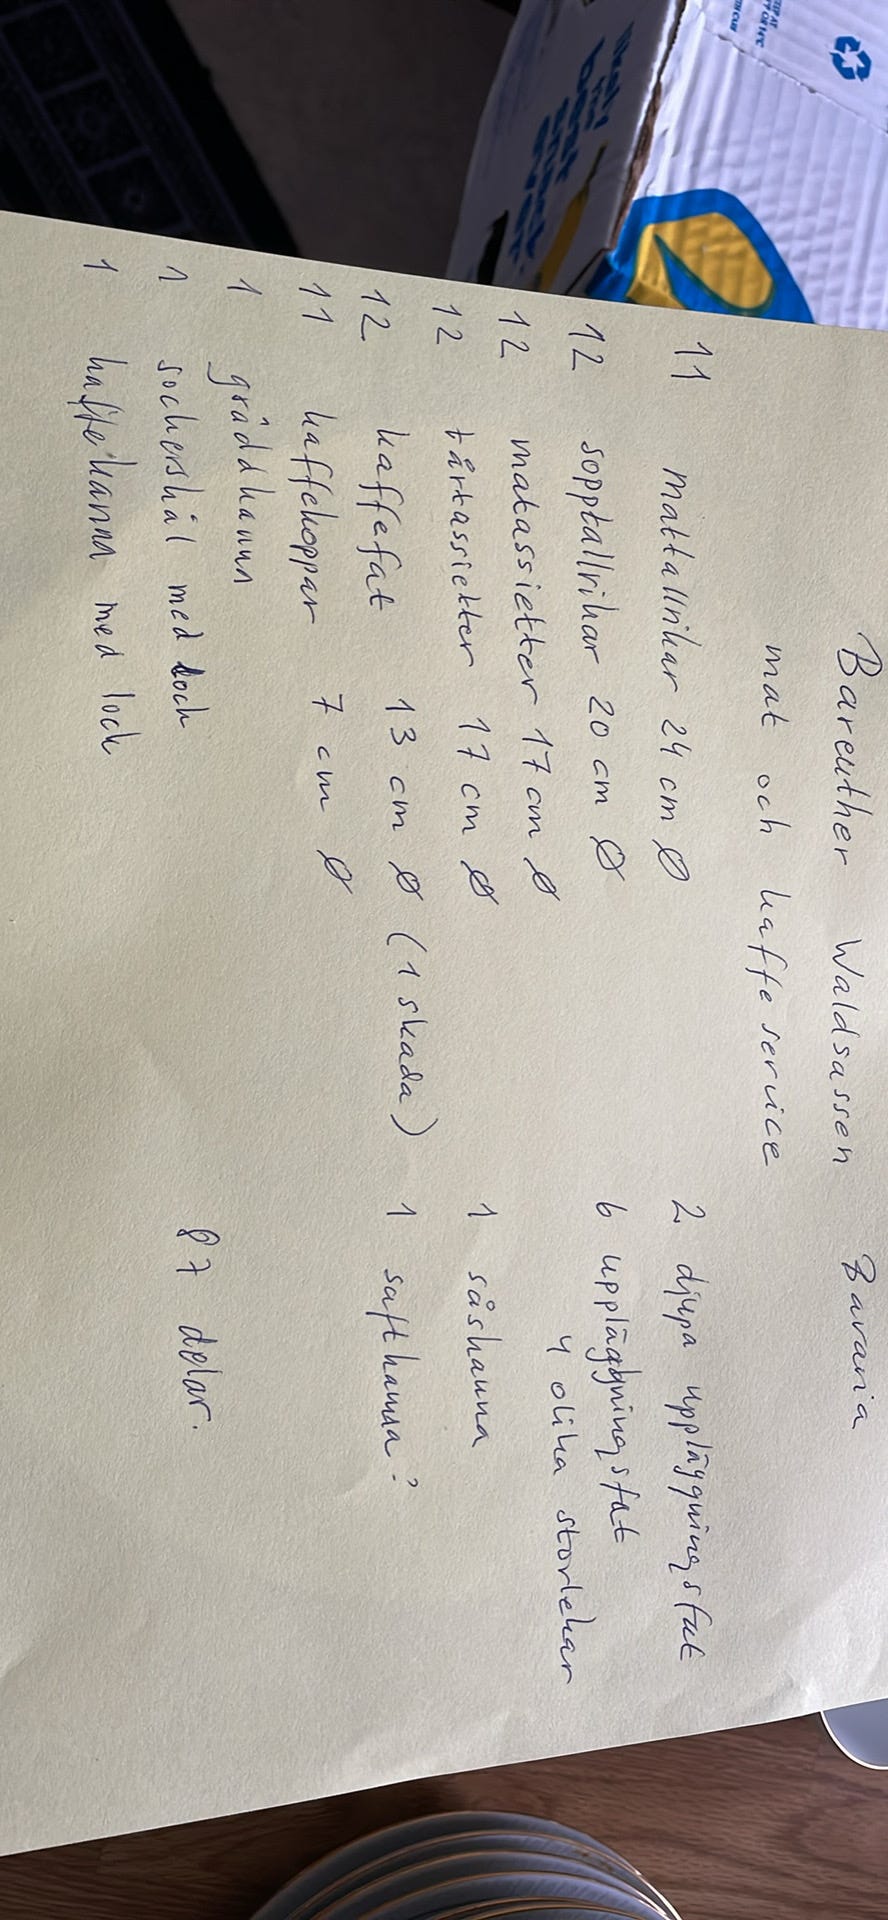 Bareuther Waldsassen Bavaria
mat och kaffe service
11 mattallrikar 24 cm Ø
12 sopptallrikar 20 cm Ø
12 matassietter 17 cm Ø
12 tårtassietter 17 cm Ø
12 kaffefat 13 cm Ø (1 skada)
11 kaffekoppar 7 cm Ø
1 gräddkanna
1 sockerskål med lock
1 kaffekanna med lock
2 djupa uppläggningsfat
6 uppläggningsfat
4 olika storlekar
1 såskanna
1 saftkanna?
87 delar.